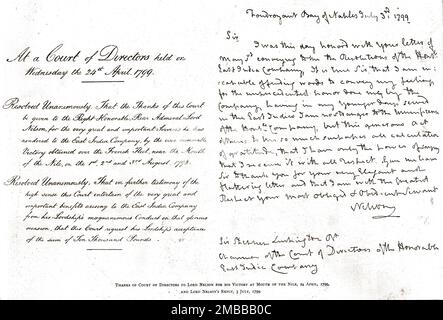 At a Court of Directors held on
Wednesday the 24th April 1799.
Resolved Unanimously, That the Thanks of this Court
be given to the Right Honorable Rear Admiral Lord
Nelson, for the very great and important Services he has
rendered to the East India Company, by the ever memorable
Victory obtained over the French Fleet, near the Mouth
of the Nile, on the 1st, 2nd & 3rd August 1798.
Resolved Unanimously, That in further testimony of the
high sense this Court entertain of the very great and
important benefits arising to the East India Company
from his Lordship's magnanimous Conduct on that glorious
occasion, that this Court request his Lordship's acceptance
of the sum of Ten Thousand Pounds.
Foudroyant Bay of Naples July 3rd 1799
Sir
I was this day honor'd with your letter of
May 1st conveying to me the Resolutions of the Honble
East India Company. It is true Sir that I am in=
capable of finding words to convey my feelings
for the unprecedented honor done me by the
Company, having in my younger days served
in the East Indies I am no stranger to the munificence
of the Honble Company, but this generous act
of theirs so much surpasses all calculation
of gratitude, that I have only the power of saying
that I receive it with all respect. Give me leave
Sir to thank you for your very elegant and
flattering letter and that I am with the greatest
Respect your most obliged & Obedient Servant
Nelson
Sir Stephen Lushington Bt
Chairman of the Court of Directors of the Honorable
East India Company
THANKS OF COURT OF DIRECTORS TO LORD NELSON FOR HIS VICTORY AT MOUTH OF THE NILE, 24 APRIL, 1799,
AND LORD NELSON'S REPLY, 3 JULY, 1799
alamy
Image ID: 2MBBB0C
www.alamy.com